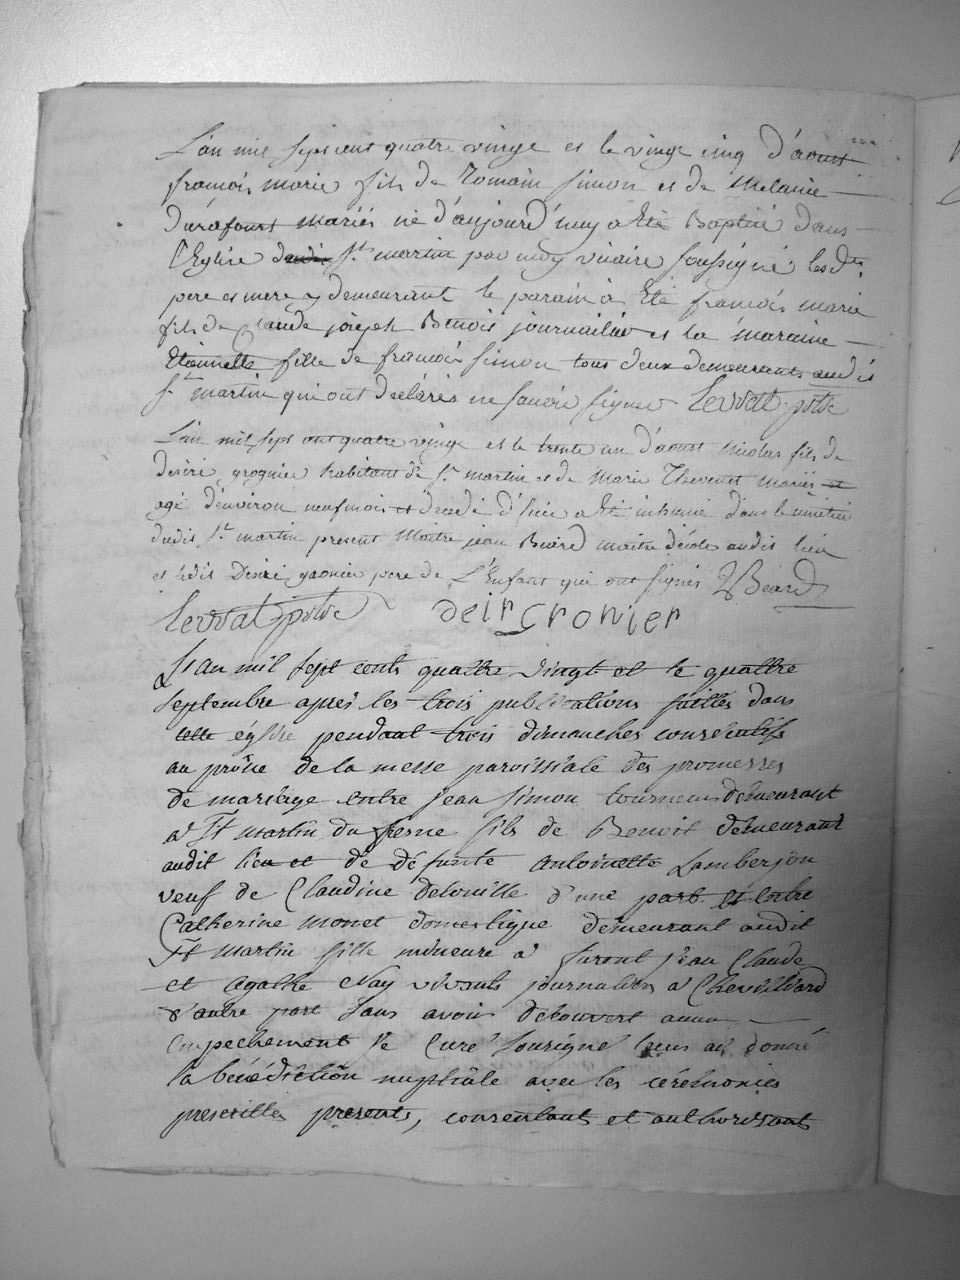 L'an mil sept cent quatre vingt et le vingt cinq d'aoust
françois marie fils de Romain simon et de Melanie
Durafourt mariés né d'aujourd'huy a Eté Baptisé dans
l'Eglise dudit St martin par moy vicaire soussigné les dts
pere et mere y demeurant le parain a Eté françois marie
fils de Claude joseph Benoit journailier et la maraine
Etiennette fille de françois simon tous deux demeurants audit
St martin qui ont déclarés ne savoir signer
L'an mil sept cent quatre vingt et le trente un d'aoust nicolas fils de
desiré grognier habitant de St martin et de Marie Thevenet mariés et
agé d'environ neuf mois et decedé d'hier a Eté inhumé dans le cimetiere
dudit St martin present Maitre jean Beard maitre d'école audit lieu
et ledit Desiré pere de L'Enfant qui ont signés JBeard
L'an mil sept cents quattre vingt et le quattre
septembre après les trois publications faittes dans
cette église pendant trois dimanches consecutifs
au prône de la messe paroissiale des promesses
de mariage entre jean simon tourneur demeurant
a St Martin du fresne fils de Benoit demeurant
audit lieu et de défunte antoinette Lamberjon
veuf de Claudine d'une part et entre
Catherine monet domestique demeurant audit
St Martin fille mineure a furent jean Claude
et agathe Nay vivants journaliers a Chevilliard
d'autre part sans avoir decouvert aucun
empechement le Curé sousigné leur ai donné
la bénédiction nuptiale avec les cérémonies
prescrittes presents, consentants et authorisants